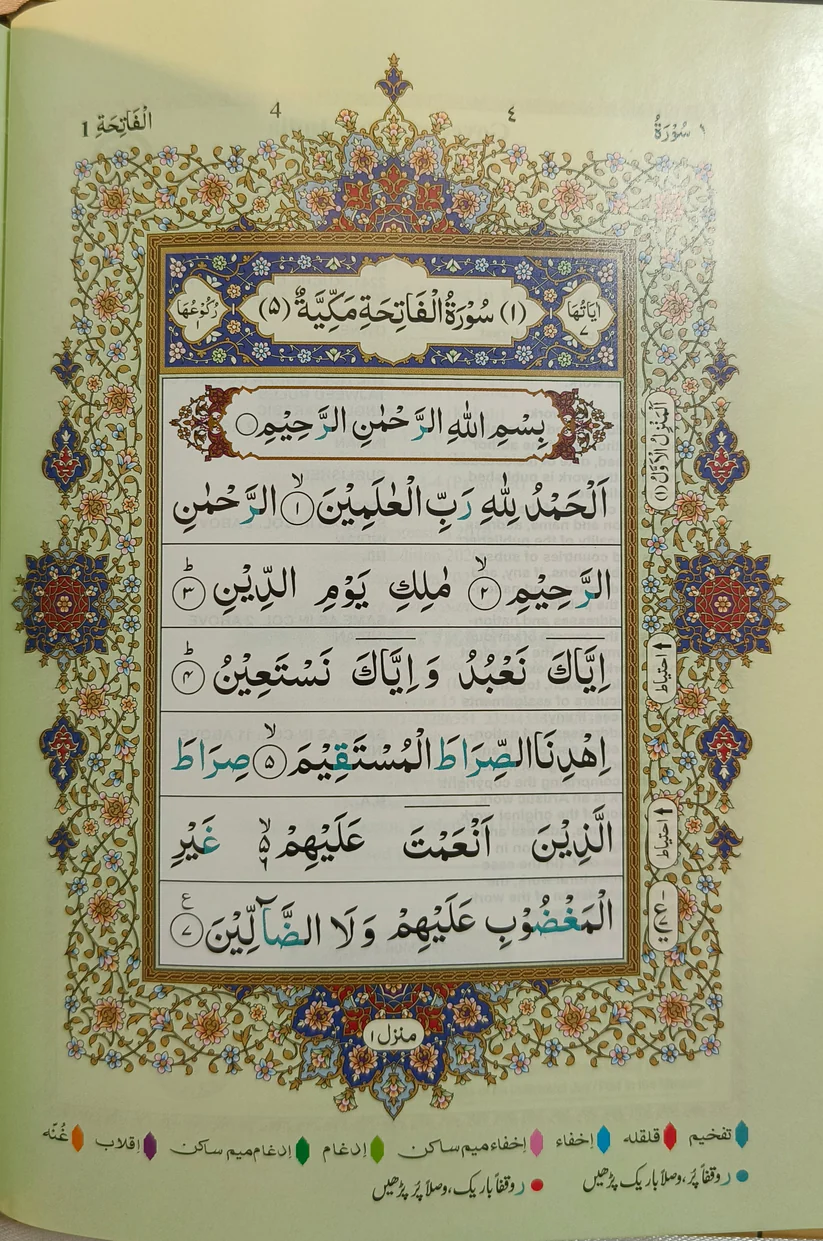 سُوْرَةُ ١ ٤ 4 الْفَاتِحَةِ 1
اٰيَاتُهَا ٧ (١) سُوْرَةُ الْفَاتِحَةِ مَكِّيَّةٌ (۵) رُكُوْعُهَا ١
بِسْمِ اللّٰهِ الرَّحْمٰنِ الرَّحِيْمِ ○
اَلْحَمْدُ لِلّٰهِ رَبِّ الْعٰلَمِيْنَ ۙ﴿١﴾ الرَّحْمٰنِ
الرَّحِيْمِ ۙ﴿٢﴾ مٰلِكِ يَوْمِ الدِّيْنِ ؕ﴿٣﴾
اِيَّاكَ نَعْبُدُ وَ اِيَّاكَ نَسْتَعِيْنُ ؕ﴿۴﴾
اِهْدِنَا الصِّرَاطَ الْمُسْتَقِيْمَ ۙ﴿۵﴾ صِرَاطَ
الَّذِيْنَ اَنْعَمْتَ عَلَيْهِمْ ۙ۬ۦ غَيْرِ
الْمَغْضُوْبِ عَلَيْهِمْ وَلَا الضَّآلِّيْنَ ﴿٧﴾ ع
اَلْمَنْزِلُ الْاَوَّلُ (١)
احتیاط
احتیاط
منزل ١
تفخیم قلقله إخفاء إخفاء میم ساکن إدغام إدغام میم ساکن إقلاب غُنّه
ر وقفاً پُر، وصلاً باریک پڑھیں
ر وقفاً باریک، وصلاً پُر پڑھیں